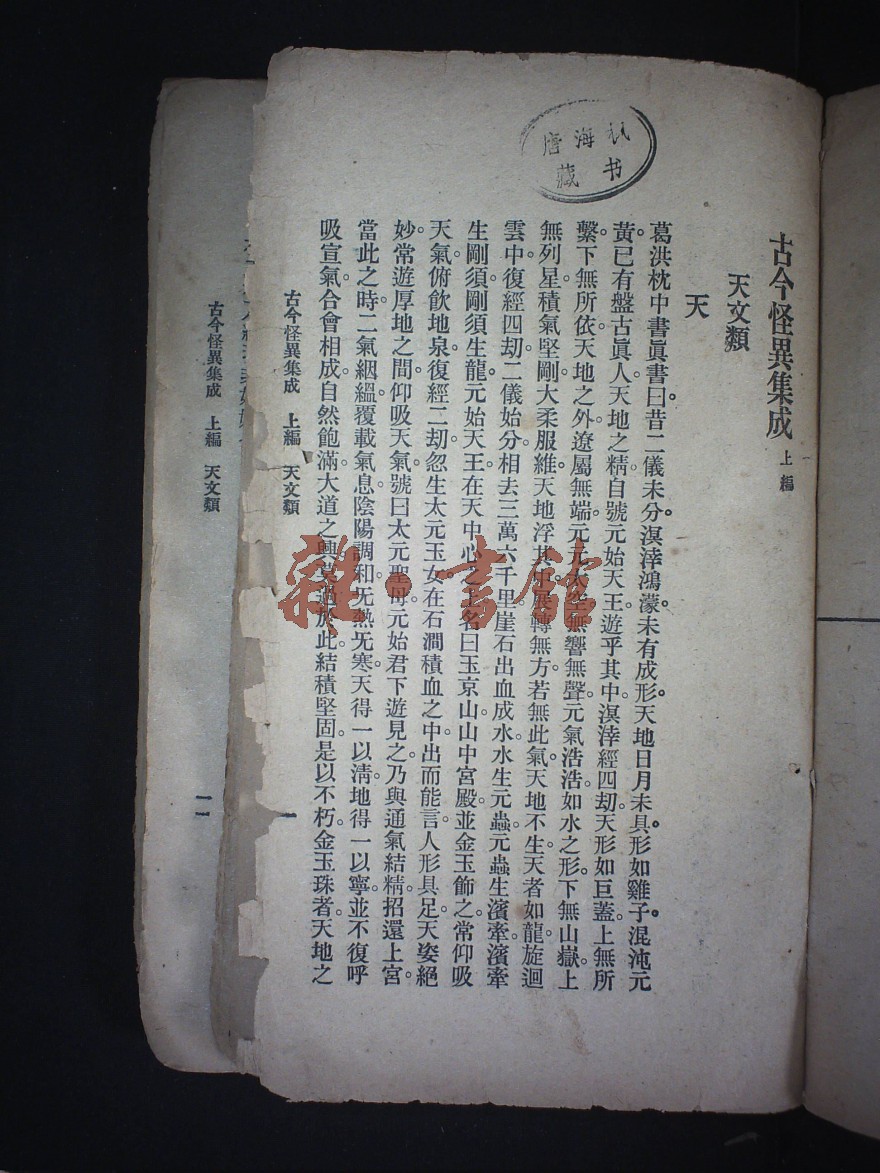 古今怪異集成 上編
天文類
天
葛洪枕中書眞書曰。昔二儀未分。溟涬鴻濛。未有成形。天地日月未具。形如雞子。混沌元
黃。已有盤古眞人。天地之精。自號元始天王。遊乎其中。溟涬經四劫。天形如巨蓋。上無所
繫。下無所依。天地之外。遼屬無端。元元太空。無響無聲。元氣浩浩。如水之形。下無山嶽。上
無列星。積氣堅剛。大柔服維。天地浮其中。展轉無方。若無此氣。天地不生。天者如龍旋迴
雲中。復經四劫。二儀始分。相去三萬六千里。崖石出血成水。水生元蟲。元蟲生濱牽。濱牽
生剛須。剛須生龍。元始天王在天中心之上。名曰玉京山。山中宮殿。並金玉飾之。常仰吸
天氣。俯飲地泉。復經二劫。忽生太元玉女。在石澗積血之中。出而能言。人形具足。天姿絕
妙。常遊厚地之間。仰吸天氣。號曰太元聖母。元始君下遊見之。乃與通氣結精。招還上宮。
當此之時。二氣絪縕。覆載氣息。陰陽調和。无熱无寒。天得一以淸。地得一以寧。並不復呼
吸。宣氣合會。相成自然飽滿。大道之興。莫過於此。結積堅固。是以不朽。金玉珠者。天地之
古今怪異集成 上編 天文類
一
古今怪異集成 上編 天文類
二
海
藏书
雜·書館